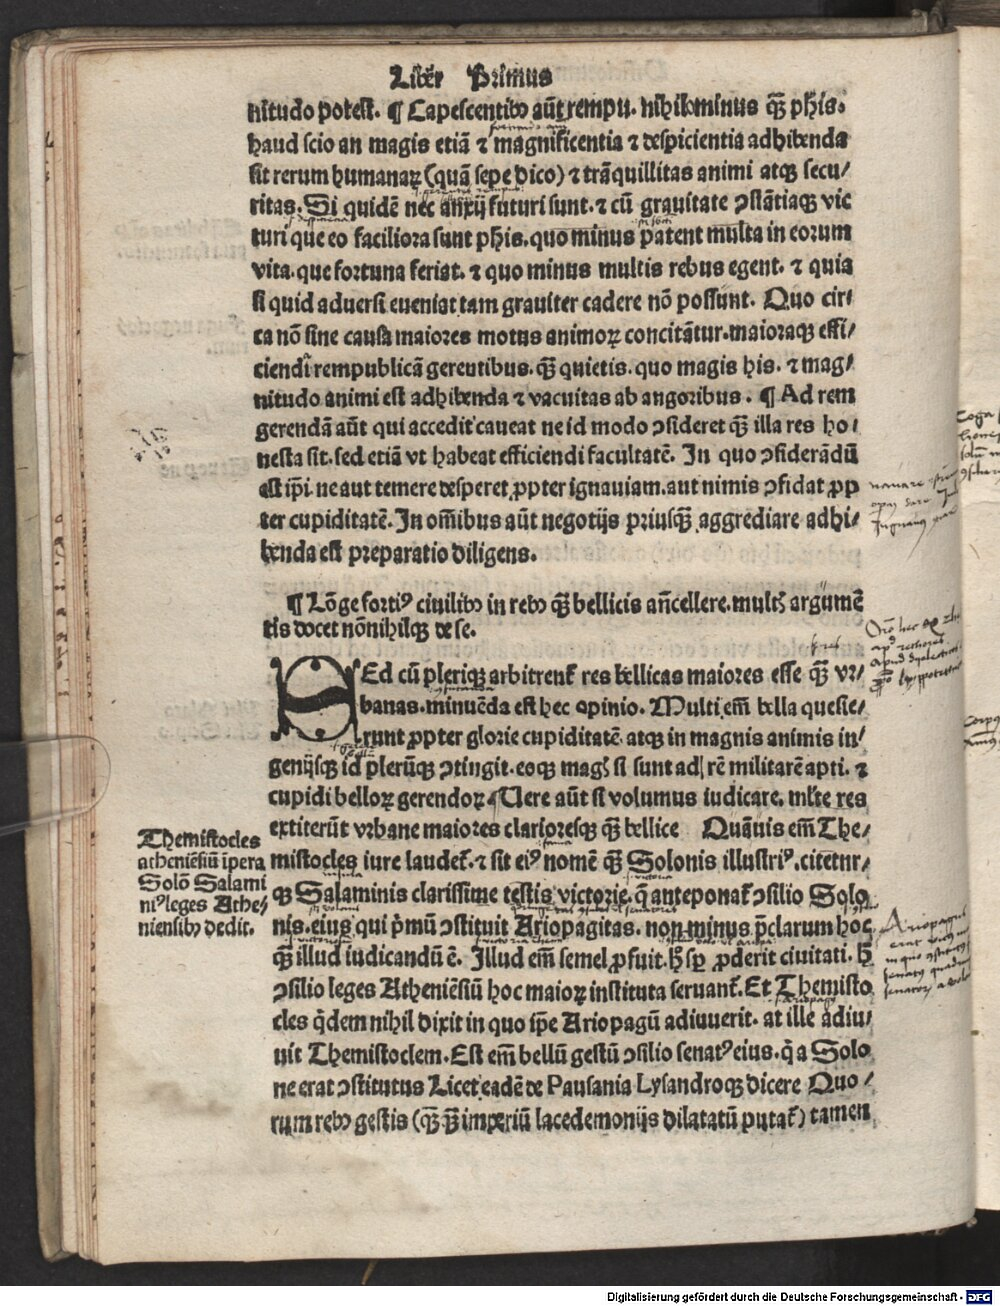 Liber Primus
nitudo potest. ¶ Capescentibꝰ aūt rempu. nihilominus qꝫ phis.
haud scio an magis etiā ⁊ magnificentia ⁊ despicientia adhibenda
sit rerum humanaꝝ (quā sepe dico) ⁊ trāquillitas animi atqꝫ secu/
ritas. Si quidē nec anxij futuri sunt. ⁊ cū grauitate ꝯstātiaqꝫ vic
turi que eo faciliora sunt phis. quo minus patent multa in eorum
vita. que fortuna feriat. ⁊ quo minus multis rebus egent. ⁊ quia
si quid aduersi eueniat tam grauiter cadere nō possunt. Quo cir/
ca nō sine causa maiores motus animoꝝ concitātur. maioraqꝫ effi/
ciendi rempublicā gerentibus. qꝫ quietis. quo magis his. ⁊ mag/
nitudo animi est adhibenda ⁊ vacuitas ab angoribus. ¶ Ad rem
gerendā aūt qui accedit caueat ne id modo ꝯsideret qꝫ illa res ho/
nesta sit. sed etiā vt habeat efficiendi facultatē. In quo ꝯsiderādū
est ip̄i ne aut temere desperet ꝓpter ignauiam. aut nimis ꝯfidat ꝓp
ter cupiditatē. In om̄ibus aūt negotijs priusqꝫ aggrediare adhi/
benda est preparatio diligens.
¶ Lōge fortiꝰ ciuilibꝰ in rebꝰ qꝫ bellicis añcellere. mult; argumē
tis docet nōnihilqꝫ de se.
SEd cū pleriqꝫ arbitrent̄ res bellicas maiores esse qꝫ vr/
banas. minuēda est hec opinio. Multi em̄ bella quesie/
runt ꝓpter glorie cupiditatē atqꝫ in magnis animis in/
genijsqꝫ id plerūqꝫ ꝯtingit. eoqꝫ mag; si sunt ad rē militarē apti. ⁊
cupidi belloꝝ gerendoꝝ Vere aūt si volumus iudicare. ml̄te res
extiterūt vrbane maiores clarioresqꝫ qꝫ bellice Quāuis em̄ The/
Themistocles
atheniēsiū īpera
Solō Salami
niꝰ leges Athe/
niensibꝰ dedit.
mistocles iure laudet̄. ⁊ sit eiꝰ nomē qꝫ Solonis illustriꝰ. citetnr/
qꝫ Salaminis clarissime testis victorie. q̄ anteponat̄ ꝯsilio Solo
nis. eius qui p̄mū ꝯstituit Ariopagitas. non minus p̄clarum hoc
qꝫ illud iudicandū ē. Illud em̄ semel ꝓfuit. h̄ sꝑ ꝓderit ciuitati. h̄
ꝯsilio leges Atheniēsiū hoc maioꝝ instituta seruant̄. Et Themisto
cles q̄dem nihil dixit in quo ip̄e Ariopagū adiuuerit. at ille adiu/
uit Themistoclem. Est em̄ bellū gestū ꝯsilio senatꝰ eius. q̄ a Solo
ne erat ꝯstitutus Licet eadē de Pausania Lysandroqꝫ dicere Quo/
rum rebꝰ gestis (qꝫ qꝫ imperiū lacedemonijs dilatatū putat̄) tamen
Ariopagus
erat
Digitalisierung gefördert durch die Deutsche Forschungsgemeinschaft - DFG